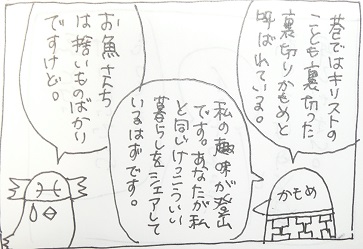 巷ではキリストの
ことも裏切った
裏切りかもめと
呼ばれている。
私の趣味が登山
です。あなたが私
と同いけっこういい
暮らしをシェアして
いるはずです。
お魚さたち
は捨いものばかり
ですけど。
かもめ